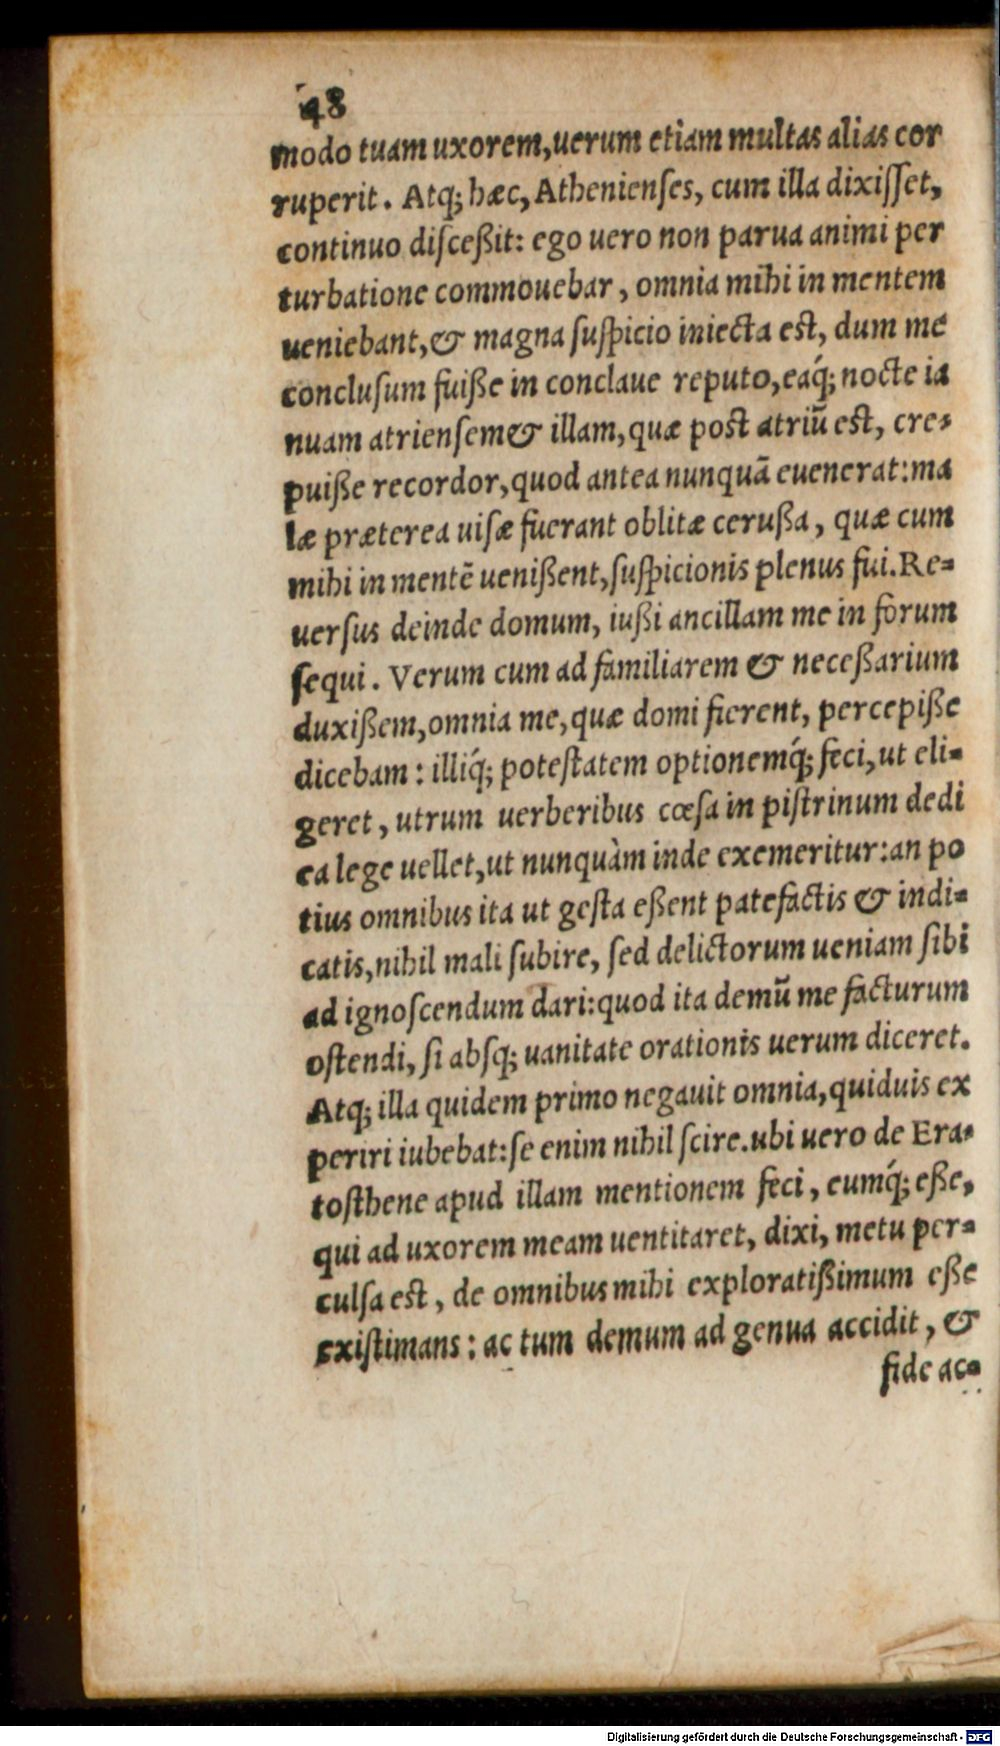 48
modo tuam uxorem, uerum etiam multas alias cor
ruperit. Atq; hæc, Athenienſes, cum illa dixiſſet,
continuo diſceßit: ego uero non parua animi per
turbatione commouebar, omnia mihi in mentem
ueniebant, & magna ſuſpicio iniecta est, dum me
concluſum fuiße in conclaue reputo, eaq́; nocte ia
nuam atrienſem & illam, quæ post atriũ est, cre-
puiße recordor, quod antea nunquã euenerat: ma
læ præterea uiſæ fuerant oblitæ cerußa, quæ cum
mihi in mentẽ uenißent, ſuſpicionis plenus fui. Re-
uerſus deinde domum, iußi ancillam me in forum
ſequi. Verum cum ad familiarem & neceßarium
duxißem, omnia me, quæ domi fierent, percepiße
dicebam: illiq́; poteſtatem optionemq́; feci, ut eli-
geret, utrum uerberibus cœſa in piſtrinum dedi
ea lege uellet, ut nunquàm inde exemeritur: an po
tius omnibus ita ut geſta eßent patefactis & indi-
catis, nihil mali ſubire, ſed delictorum ueniam ſibi
ad ignoſcendum dari: quod ita demũ me facturum
oſtendi, ſi abſq; uanitate orationis uerum diceret.
Atq; illa quidem primo negauit omnia, quiduis ex
periri iubebat: ſe enim nihil ſcire. ubi uero de Era-
toſthene apud illam mentionem feci, eumq́; eße,
qui ad uxorem meam uentitaret, dixi, metu per-
culſa est, de omnibus mihi exploratißimum eße
exiſtimans: ac tum demum ad genua accidit, &
fide ac-
Digitalisierung gefördert durch die Deutsche Forschungsgemeinschaft - DFG